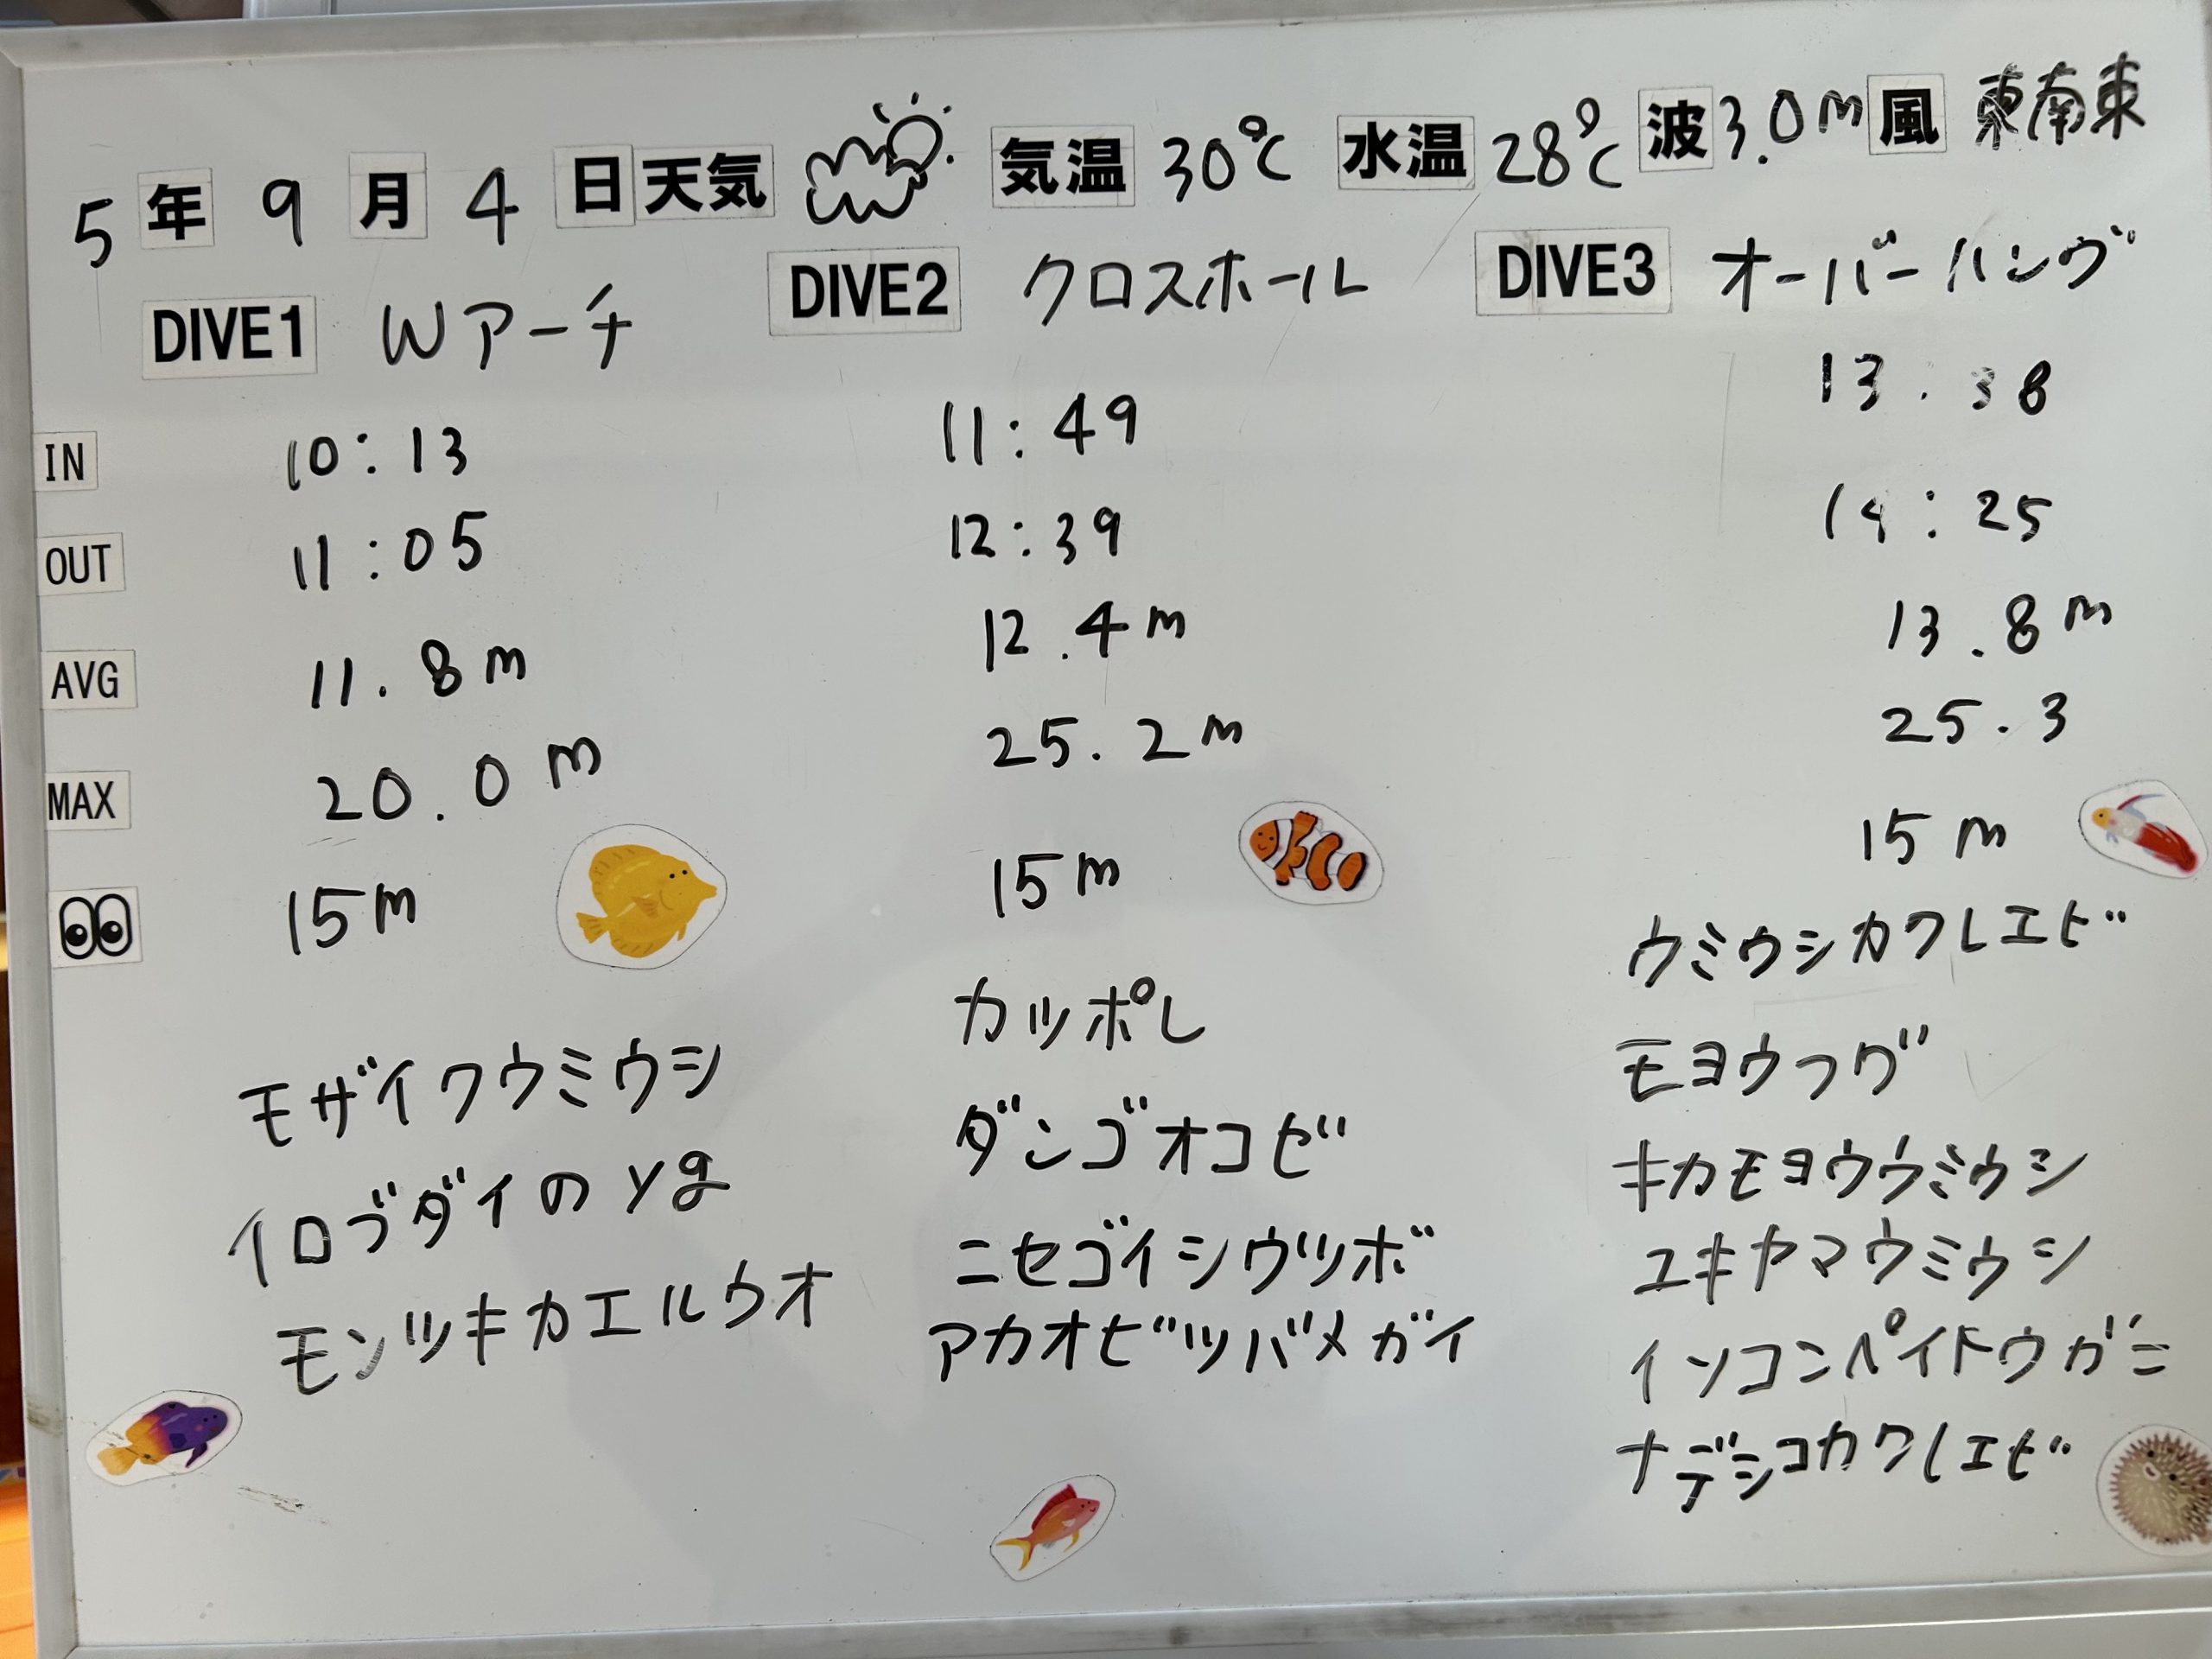 5 年 9 月 4 日 天気 気温 30℃ 水温 28℃ 波 3.0m 風 東南東
DIVE1 Wアーチ DIVE2 クロスホール DIVE3 オーバーハング
IN 10:13 11:49 13:38
OUT 11:05 12:39 14:25
AVG 11.8m 12.4m 13.8m
MAX 20.0m 25.2m 25.3
15m 15m 15m
モザイクウミウシ
イロブダイのyg
モンツキカエルウオ
カッポレ
ダンゴオコゼ
ニセゴイシウツボ
アカオビツバメガイ
ウミウシカクレエビ
モヨウフグ
キカモヨウウミウシ
ユキヤマウミウシ
イソコンペイトウガニ
ナデシコカクレエビ